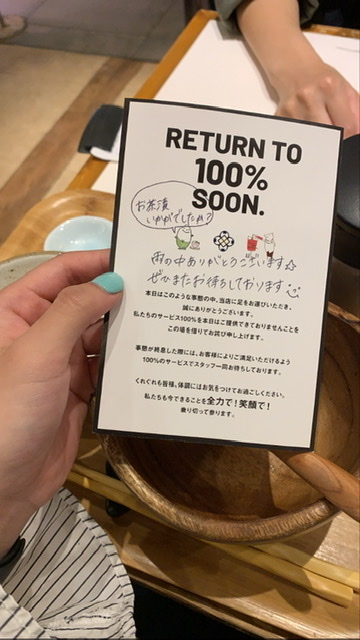 RETURN TO
100%
SOON.
お茶漬
いかがでしたか?
雨の中ありがとうございます☆
ぜひまたお待ちしております
本日はこのような事態の中、当店に足をお運びいただき、
誠にありがとうございます。
私たちのサービス100%を本日はご提供できておりませんことを
この場を借りてお詫び申し上げます。
事態が終息した際には、お客様によりご満足いただけるよう
100%のサービスでスタッフ一同お待ちしております。
くれぐれも皆様、体調にはお気をつけてお過ごしください。
私たちも今できることを全力で!笑顔で!
乗り切って参ります。